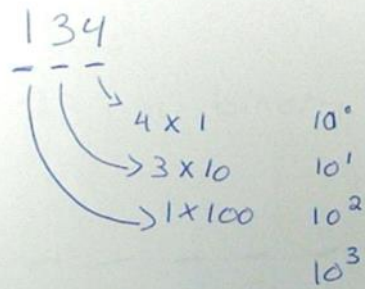 134
4 x 1 10⁰
3 x 10 10¹
1 x 100 10²
10³